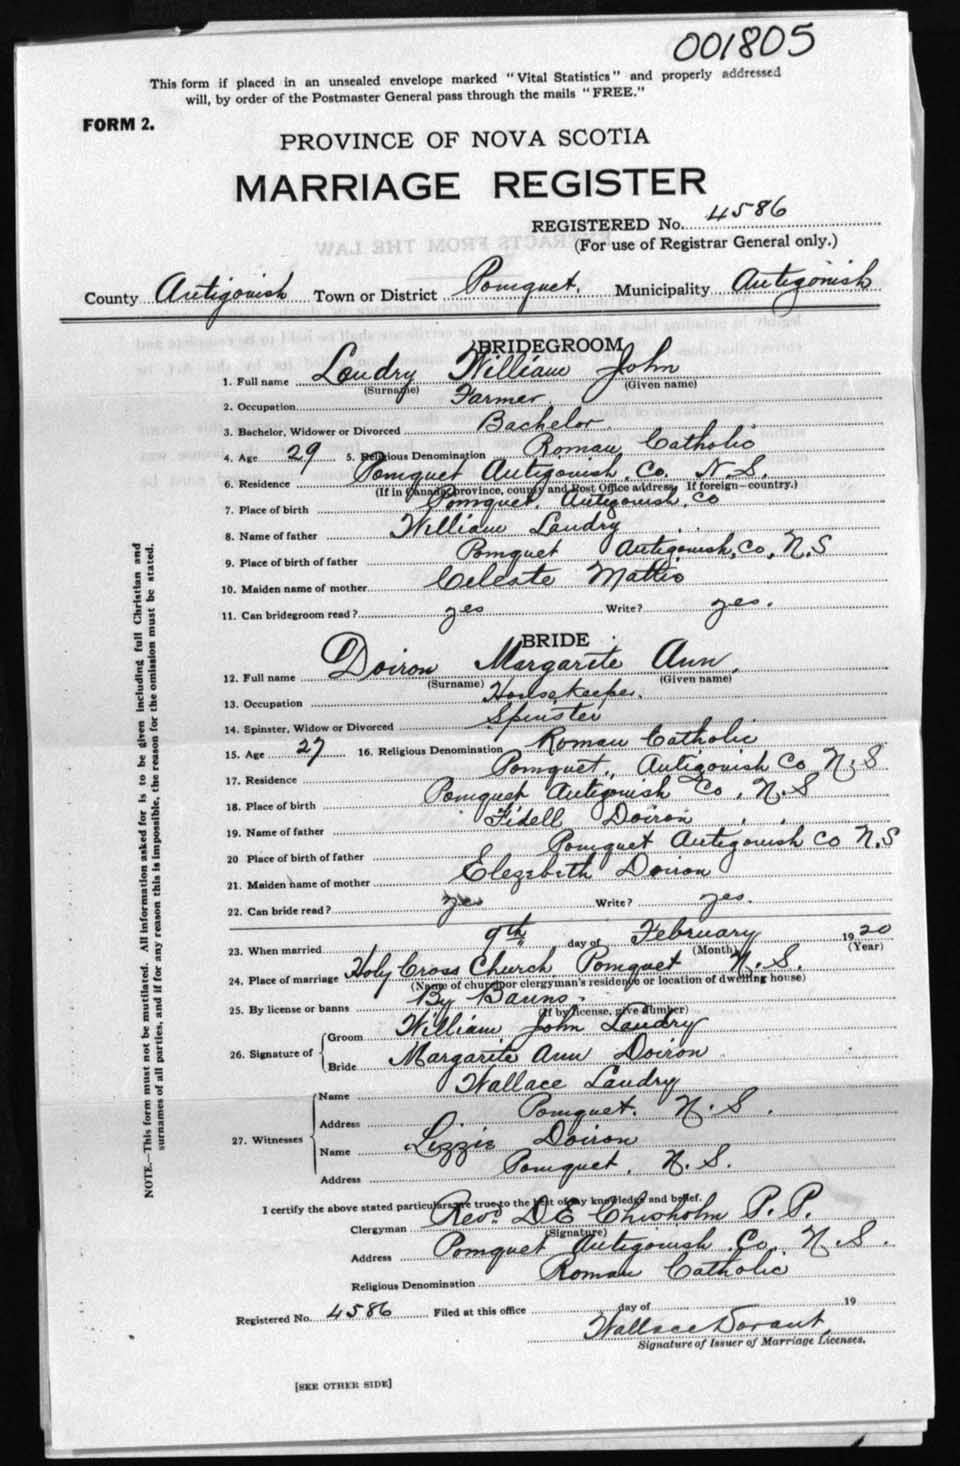 001805
This form if placed in an unsealed envelope marked "Vital Statistics" and properly addressed
will, by order of the Postmaster General pass through the mails "FREE."
FORM 2.
PROVINCE OF NOVA SCOTIA
MARRIAGE REGISTER
REGISTERED No. 4586
(For use of Registrar General only.)
County Antigonish Town or District Pomquet. Municipality Antigonish
BRIDEGROOM
1. Full name Landry William John
(Surname) (Given name)
2. Occupation Farmer.
3. Bachelor, Widower or Divorced Bachelor.
4. Age 29 5. Religious Denomination Roman Catholic
6. Residence Pomquet Antigonish, Co. N.S.
(If in Canada, province, county and Post Office address. If foreign—country.)
7. Place of birth Pomquet. Antigonish. Co
8. Name of father William Landry
9. Place of birth of father Pomquet Antigonish, Co, N.S
10. Maiden name of mother Celeste Mattio
11. Can bridegroom read? yes Write? yes.
BRIDE
12. Full name Doiron Margarite Ann.
(Surname) (Given name)
13. Occupation Housekeeper.
14. Spinster, Widow or Divorced Spinster
15. Age 27 16. Religious Denomination Roman Catholic
17. Residence Pomquet, Antigonish Co N.S
18. Place of birth Pomquet Antigonish Co, N.S
19. Name of father Fidell Doiron
20 Place of birth of father Pomquet Antigonish Co N.S
21. Maiden name of mother Elezebeth Doiron
22. Can bride read? yes Write? yes.
23. When married 9th day of February 1920
(Month) (Year)
24. Place of marriage Holy Cross Church Pomquet N.S.
(Name of church or clergyman's residence or location of dwelling house)
25. By license or banns By Banns.
(If by license, give number)
26. Signature of Groom William John Landry
Bride Margarite Ann Doiron
27. Witnesses Name Wallace Landry
Address Pomquet. N.S.
Name Lizzie Doiron
Address Pomquet. N.S.
I certify the above stated particulars are true to the best of my knowledge and belief.
Clergyman Revd. D E Chisholm P.P.
(Signature)
Address Pomquet Antigonish. Co. N.S.
Religious Denomination Roman Catholic
Registered No. 4586 Filed at this office day of 19
Wallace
Signature of Issuer of Marriage Licenses.
[SEE OTHER SIDE]
NOTE.—This form must not be mutilated. All information asked for is to be given including full Christian and
surnames of all parties, and if for any reason this is impossible, the reason for the omission must be stated.